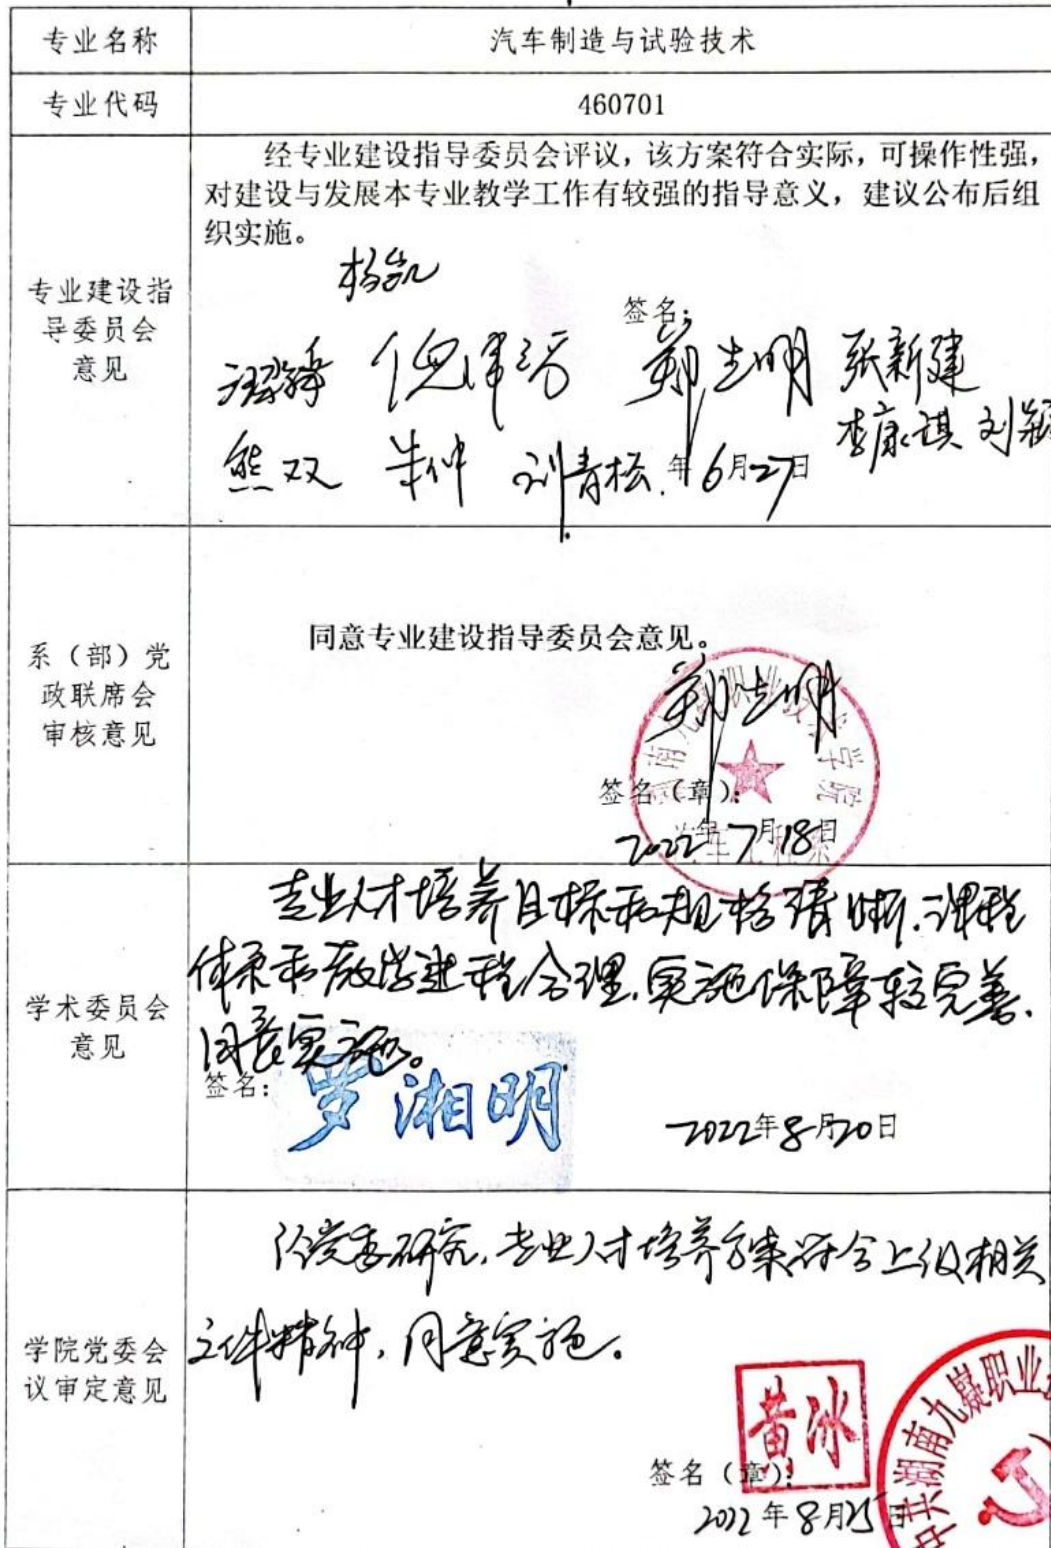 专业名称
汽车制造与试验技术
专业代码
460701
专业建设指
导委员会
意见
经专业建设指导委员会评议，该方案符合实际，可操作性强，
对建设与发展本专业教学工作有较强的指导意义，建议公布后组
织实施。
杨凯
签名：
郑志明 张新建
李康祺 刘颖
熊双 朱仲 刘青松 年6月27日
系（部）党
政联席会
审核意见
同意专业建设指导委员会意见。
郑志明
签名（章）：
2022年7月18日
学术委员会
意见
专业人才培养目标和规格清晰，课程
体系和教学进程合理，实施保障较完善，
同意实施。
签名：
罗湘明
2022年8月20日
学院党委会
议审定意见
经党委研究，专业人才培养方案符合上级相关
文件精神，同意实施。
黄冰
签名（章）：
2022年8月25日
中共湖南九嶷职业